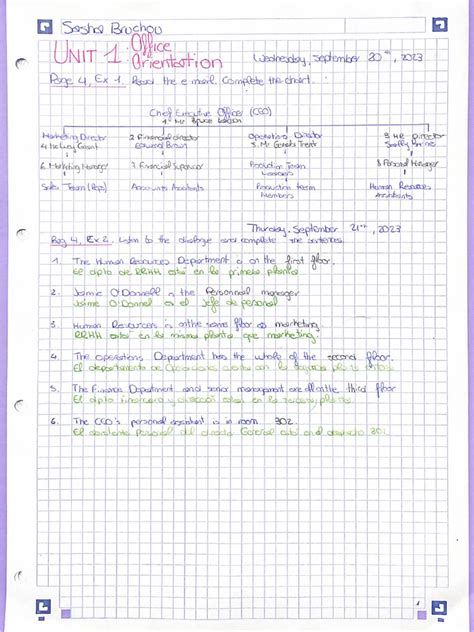 Sasha Bruchou
UNIT 1: Office Orientation
Wednesday, September 20th, 2023
Page 4, Ex 1. Read the e mail. Complete the chart.
Chief Executive Officer (CEO)
1. Mr Bruce
Marketing Director 2. Financial director Operations Director 3. HR Director
4. Grant Edward Brown 5. Mr Gerald Trent Sally
6. Marketing Manager 7. Financial Supervisor Production Team Leaders 8. Personal Manager
Sales Team (Reps) Accounts Assistants Production team Members Human Resources Assistants
Thursday, September 21st, 2023
Pag 4, Ex 2. Listen to the dialogue and complete the sentences.
1. The Human Resources Department is on the first floor.
El dpto de RRHH está en la primera planta
2. Jaime O'Donnell is the Personnel manager
Jaime O'Donnell es el Jefe de personal
3. Human Resources is on the same floor as marketing.
RRHH está en la misma planta que marketing.
4. The operations Department has the whole of the second floor.
El departamento de Operaciones
5. The Finance Department and senior management are all on the third floor
El dpto financiero y dirección están en la tercera planta
6. The CEO's personal assistant is in room 302.
El asistente Personal del director General está en el despacho 302.